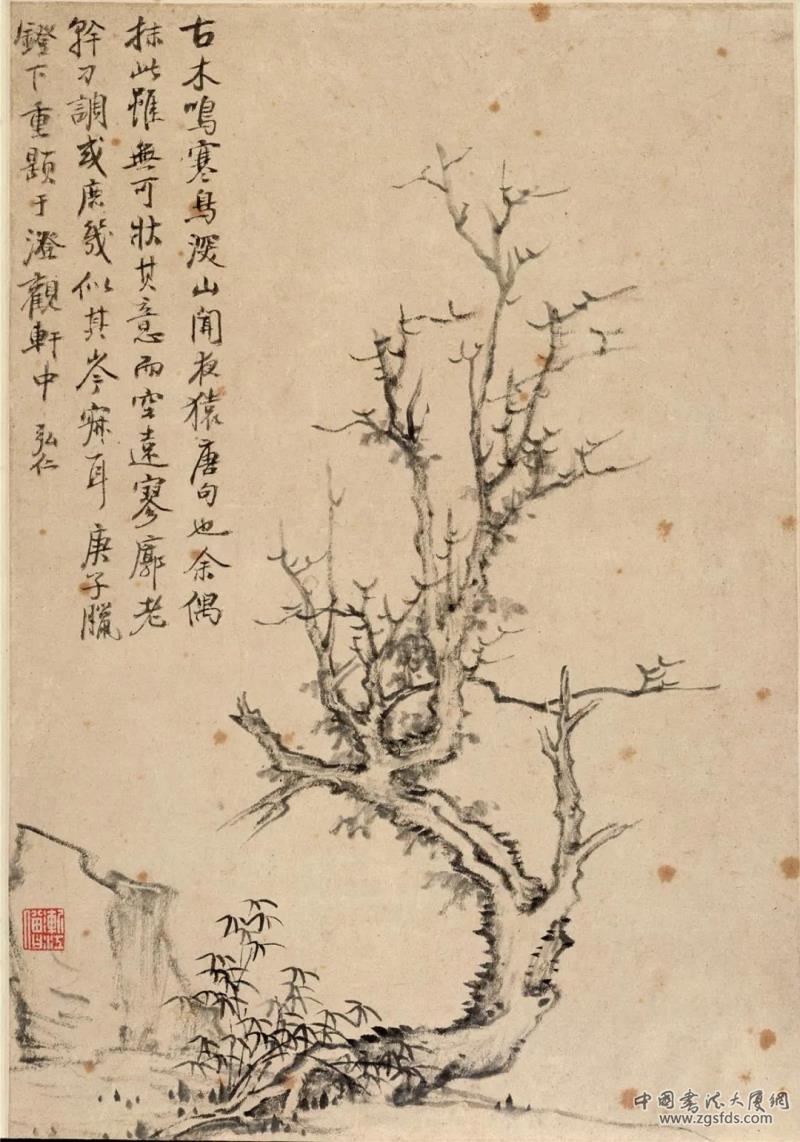 古木鳴寒鳥深山聞夜猿唐句也余偶
抹此雖無可狀其意而空遠寥廓老
幹刁調或庶幾似其岑寂耳庚子臘
鐙下重題于澄觀軒中 弘仁
漸江僧
中國書法大廈網
www.zgsfds.com